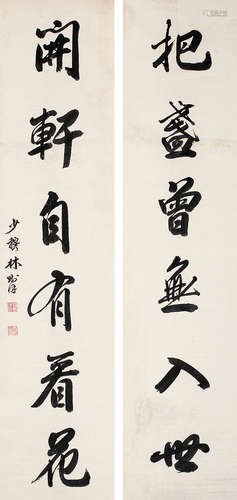 把盞曾無入世
開軒自有看花
少穆林則徐